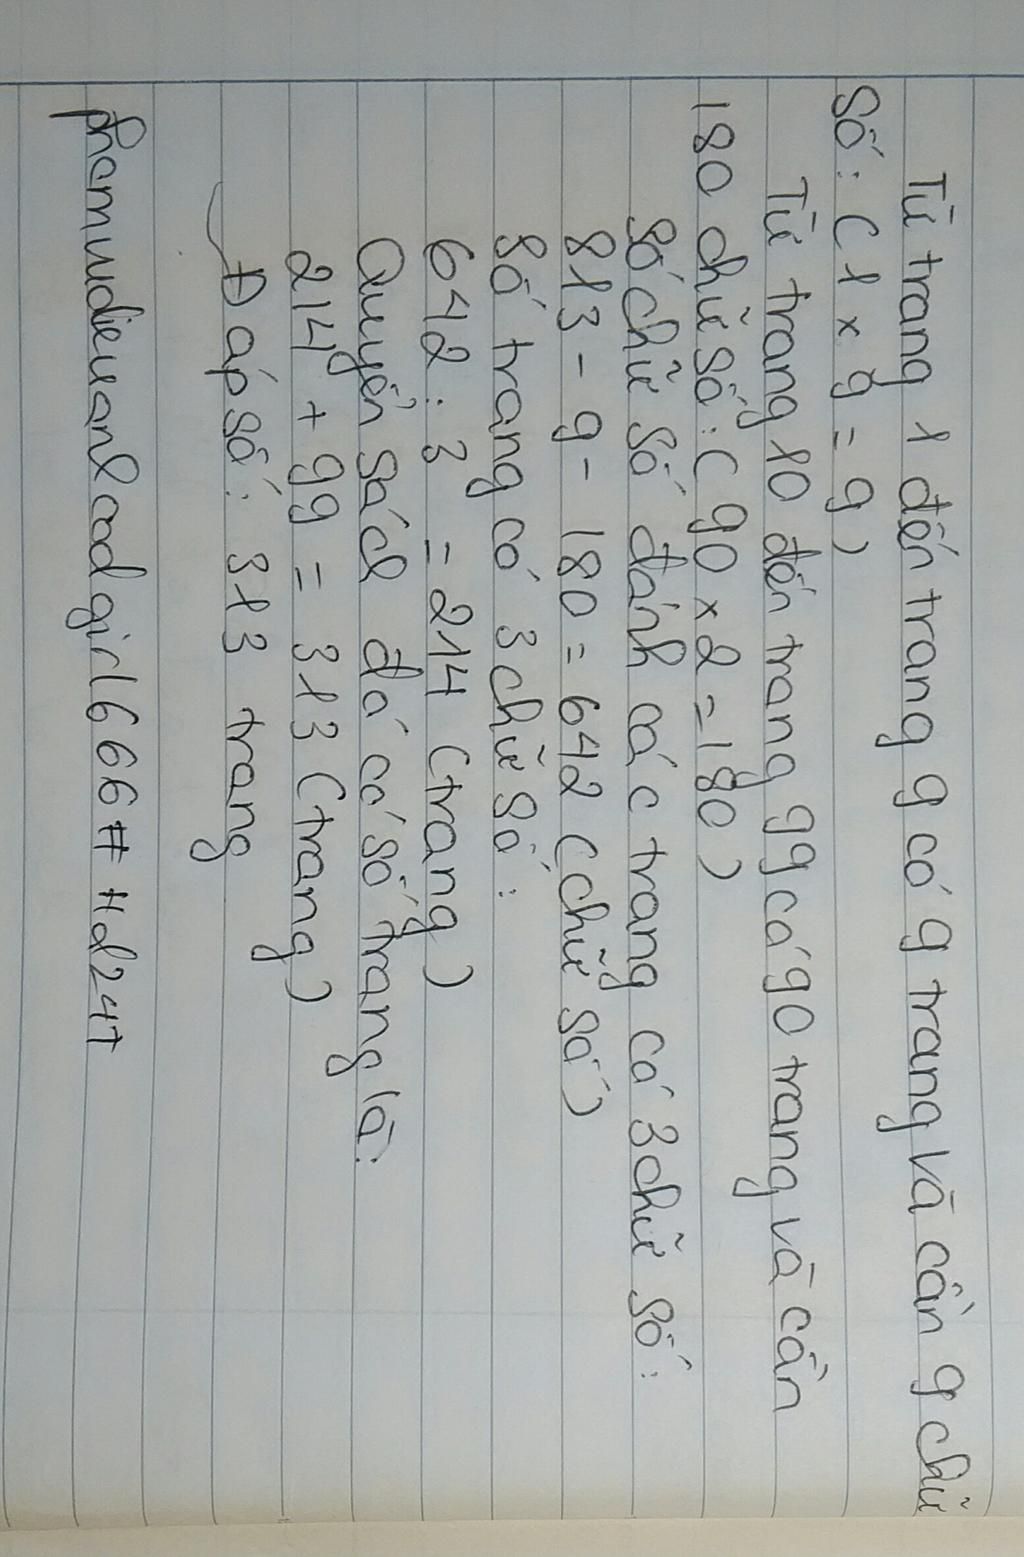 Từ trang 1 đến trang 9 có 9 trang và cần 9 chữ
số: (1 x 9 = 9)
Từ trang 10 đến trang 99 có 90 trang và cần
180 chữ số: (90 x 2 = 180)
Số chữ số đánh các trang có 3 chữ số:
813 - 9 - 180 = 642 (chữ số)
Số trang có 3 chữ số:
642 : 3 = 214 (trang)
Quyển sách đó có số trang là:
214 + 99 = 313 (trang)
Đáp số: 313 trang
phamvudieuanlcoolgirl666# Hd247